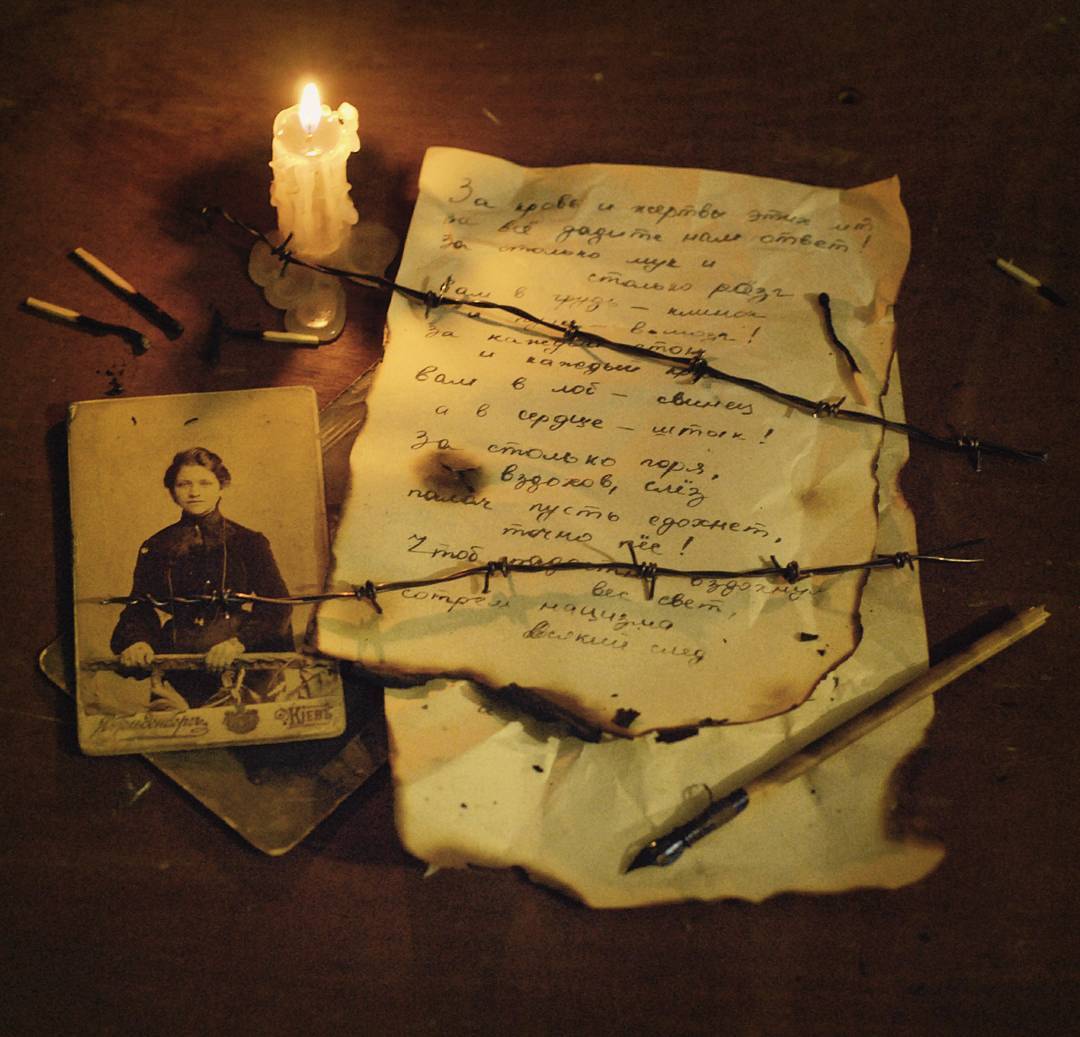 За кровь и жертвы этих лет
за всё дадите нам ответ!
За столько мук и
столько розг
Вам в грудь – клинок
и –
За каждый стон
и каждый
вам в лоб – свинец
а в сердце – штык!
За столько горя,
вздохов, слёз
палач пусть сдохнет,
точно пёс!
Чтоб
вес свет,
сотрем нацизма
всякий след
Кіевъ